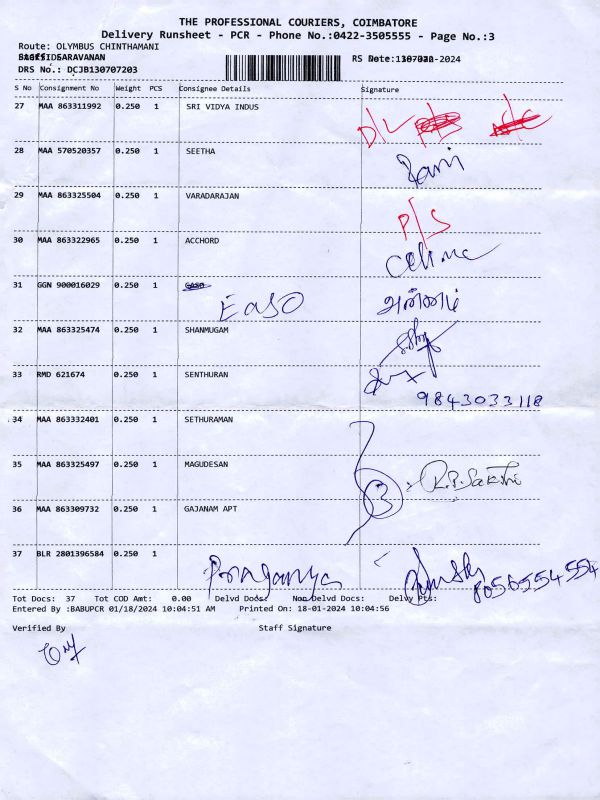 THE PROFESSIONAL COURIERS, COIMBATORE
Delivery Runsheet - PCR - Phone No.:0422-3505555 - Page No.:3
Route: OLYMBUS CHINTHAMANI
SARAVANAN
DRS No.: DCJB130707203
S No Consignment No Weight PCS Consignee Details Signature
27 MAA 863311992 0.250 1 SRI VIDYA INDUS D/L
28 MAA 570520357 0.250 1 SEETHA Rani
29 MAA 863325504 0.250 1 VARADARAJAN P/S
30 MAA 863322965 0.250 1 ACCHORD Celine
31 GGN 900016029 0.250 1 EASO
32 MAA 863325474 0.250 1 SHANMUGAM
33 RMD 621674 0.250 1 SENTHURAN 9843033118
34 MAA 863332401 0.250 1 SETHURAMAN
35 MAA 863325497 0.250 1 MAGUDESAN 3 R.P.Sakthi
36 MAA 863309732 0.250 1 GAJANAM APT
37 BLR 2801396584 0.250 1 Praganya 8056554554
Tot Docs: 37 Tot COD Amt: 0.00 Delvd Docs: Non Delvd Docs: Delvy Pts:
Entered By :BABUPCR 01/18/2024 10:04:51 AM Printed On: 18-01-2024 10:04:56
Verified By Staff Signature